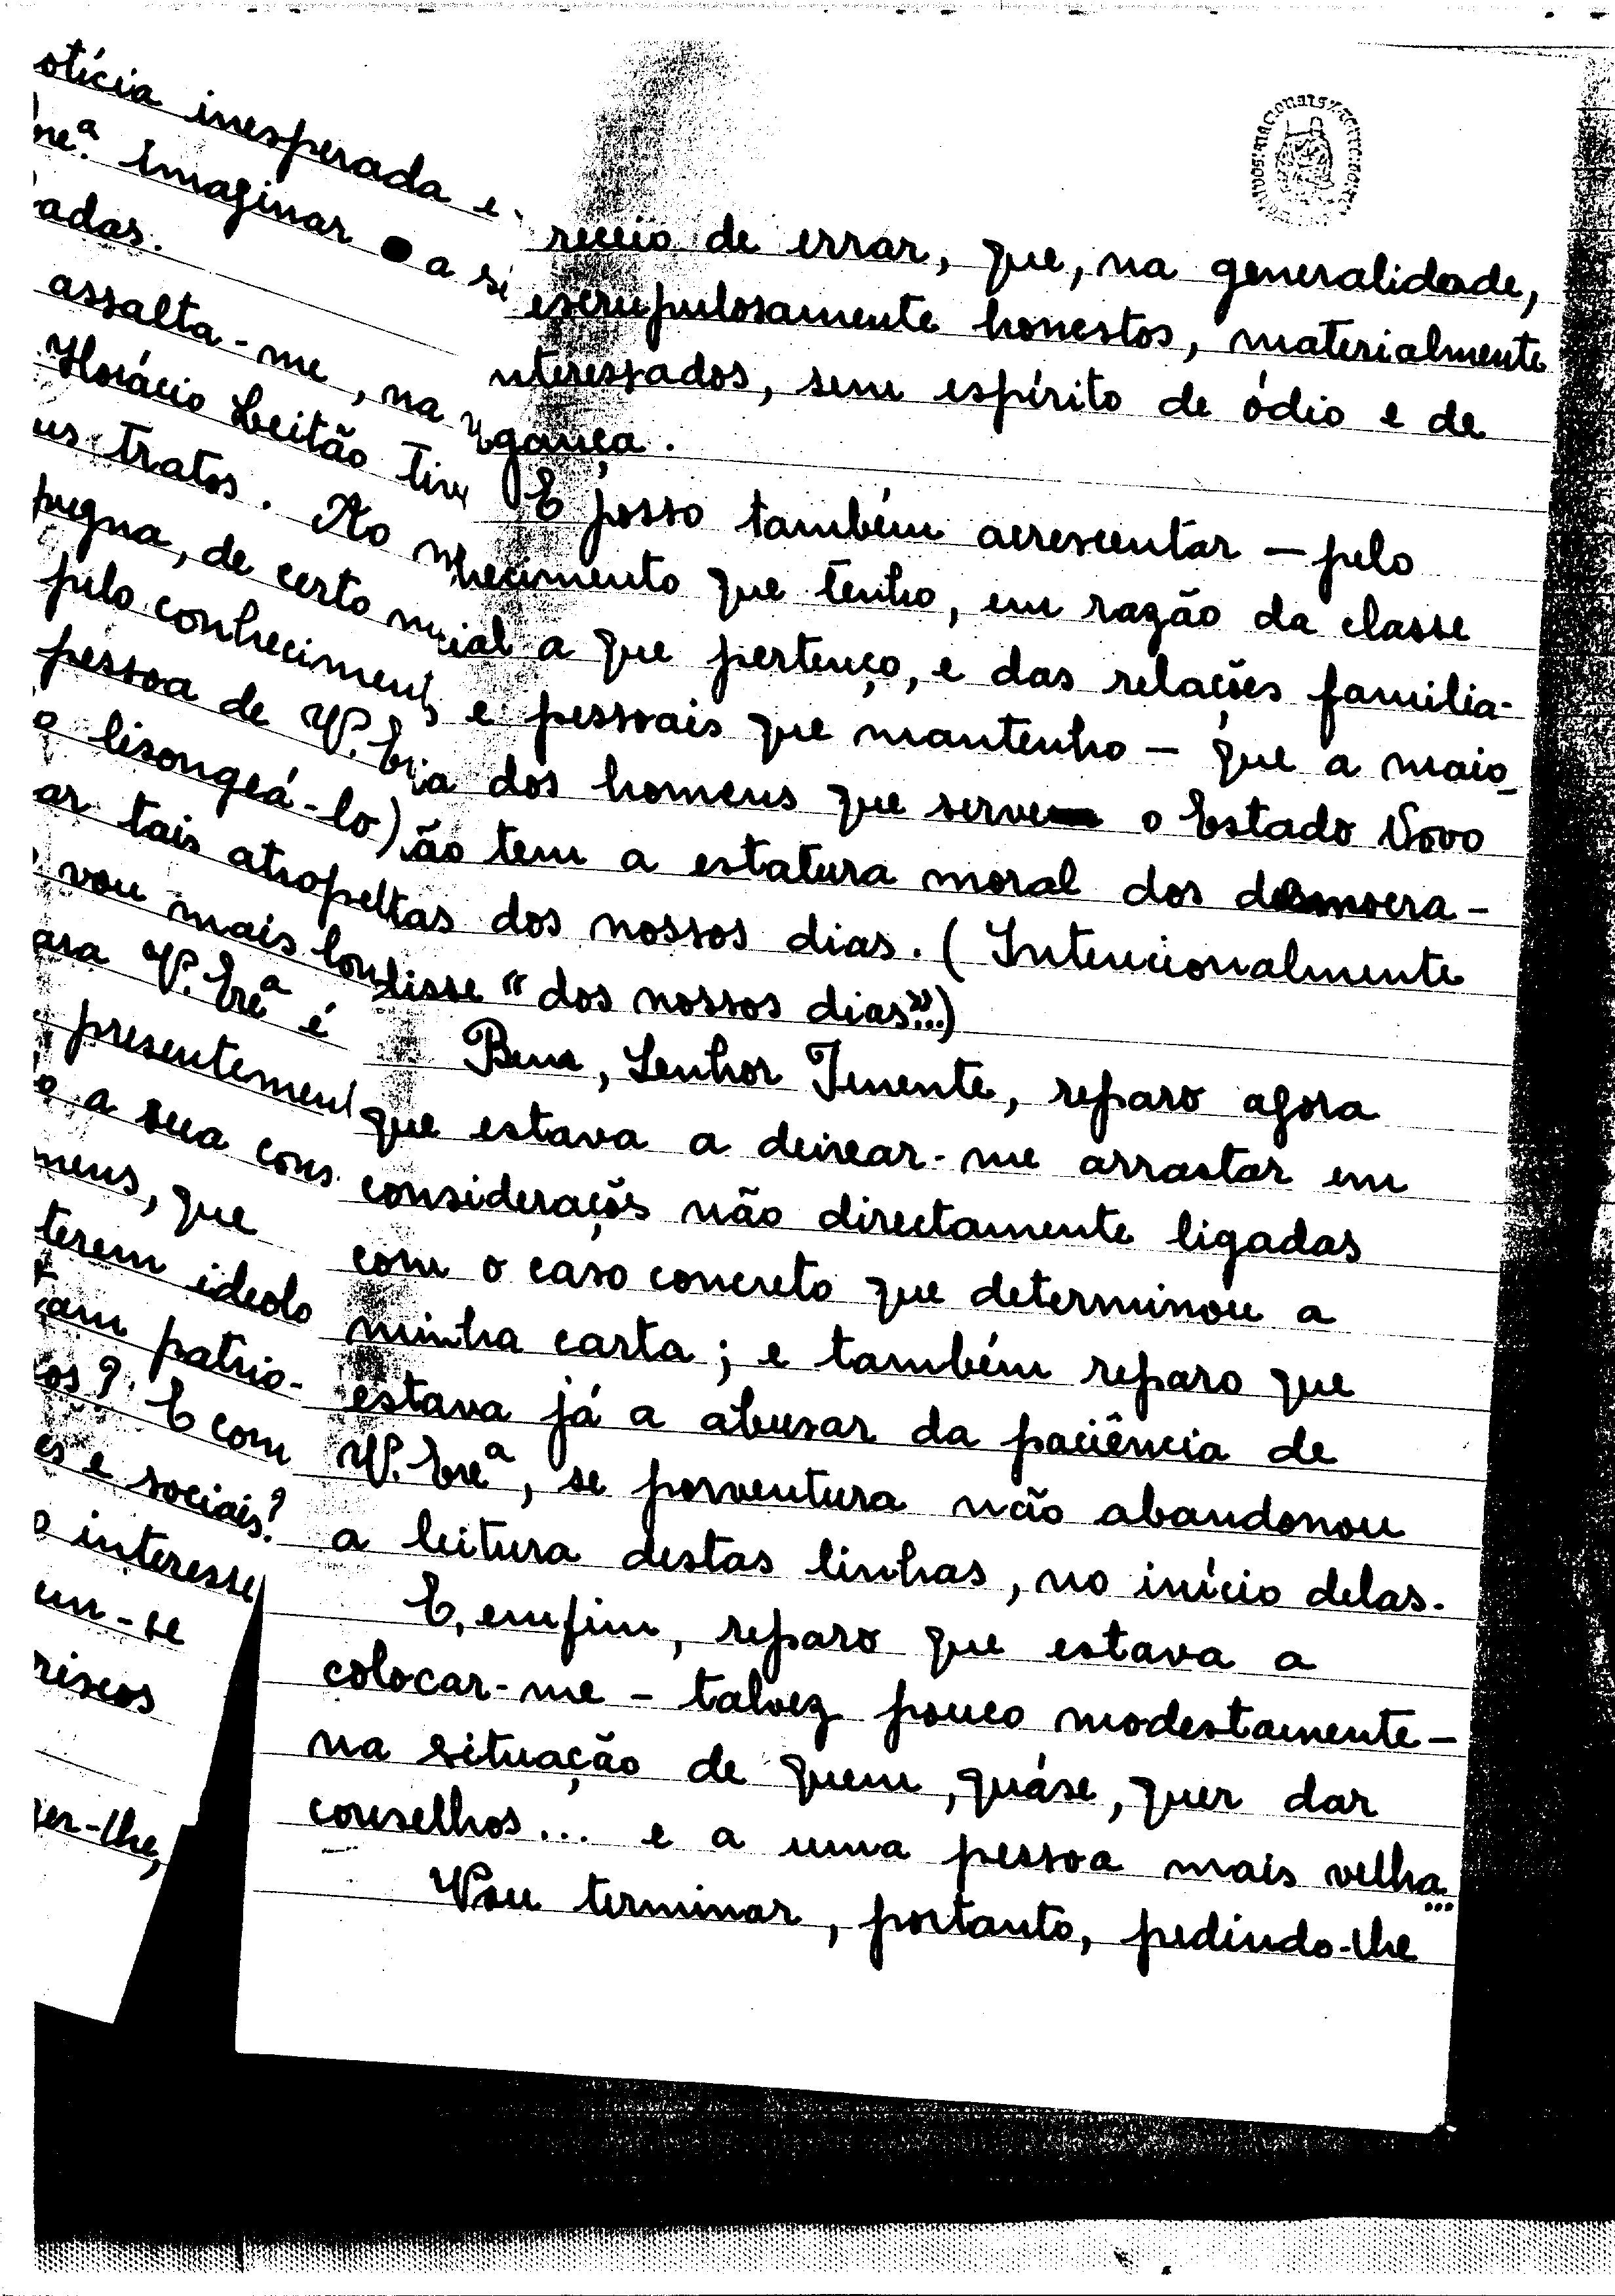 otícia inesperada e
ne.ª Imaginar a si
adas.
assalta-me, na
Horácio Leitão Tiv
us tratos. Ao
pugna, de certo m
pelo conheciment
pessoa de V. Ex
lisongeá-lo)
ar tais atropel
vou mais lon
ara V. Exª é
presentement
o a sua cons
meus, que
terem ideolo
am patrio-
os? E com
es e sociais?
o interesse
um-se
riscos
er-lhe,
receio de errar, que, na generalidade,
escrupulosamente honestos, materialmente
nteressados, sem espírito de ódio e de
ngança.
E posso também acrescentar — pelo
nhecimento que tenho, em razão da classe
cial a que pertenço, e das relações familia-
s e pessoais que mantenho — que a maio-
ia dos homens que serve o Estado Novo
ão tem a estatura moral dos democra-
tas dos nossos dias. (Intencionalmente
disse "dos nossos dias"...)
Bem, Senhor Tenente, reparo agora
que estava a deixar-me arrastar em
considerações não directamente ligadas
com o caso concreto que determinou a
minha carta; e também reparo que
estava já a abusar da paciência de
V. Exª, se porventura não abandonou
a leitura destas linhas, no início delas.
E, emfim, reparo que estava a
colocar-me — talvez pouco modestamente —
na situação de quem, quáse, quer dar
conselhos... e a uma pessoa mais velha...
Vou terminar, portanto, pedindo-lhe